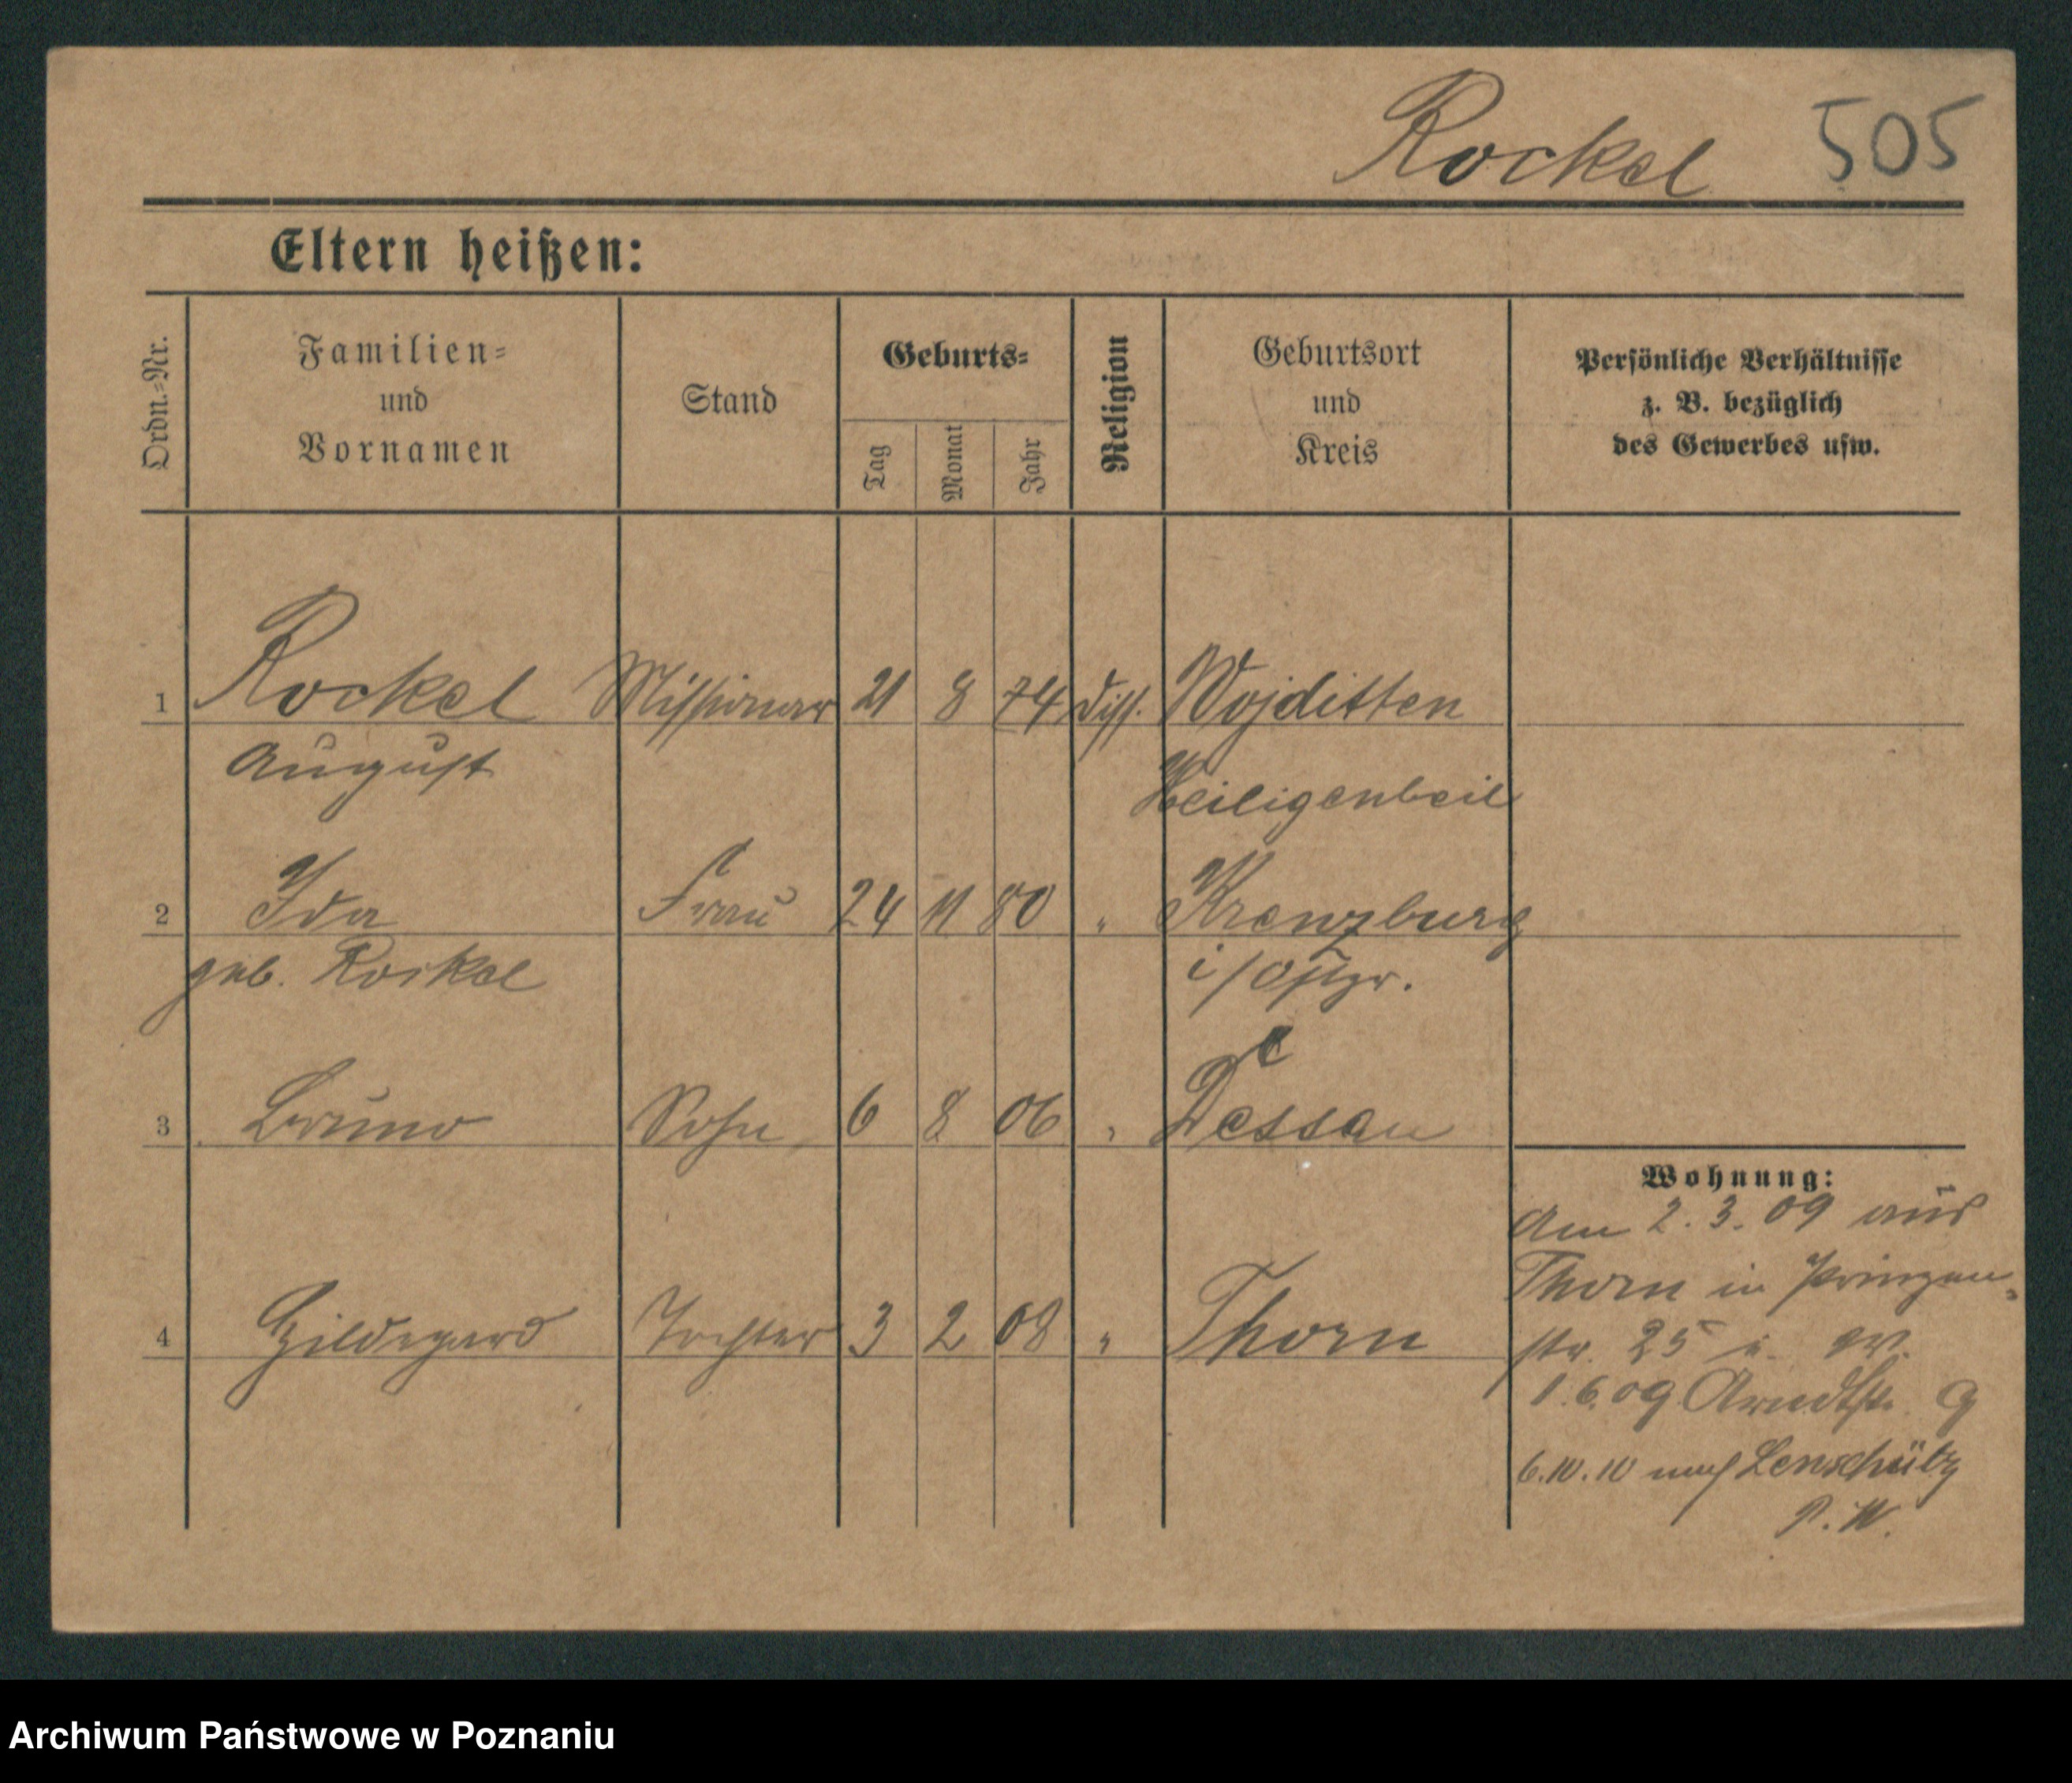 Rockel 505
Eltern heißen:
Ordn.-Nr.
Familien-
und
Vornamen
Stand
Geburts-
Tag
Monat
Jahr
Religion
Geburtsort
und
Kreis
Persönliche Verhältnisse
z. B. bezüglich
des Gewerbes usw.
1 Rockel Missionar 21 8 74 diss. Wojditten
August Heiligenbeil
2 Ida Frau 24 11 80 " Kreuzburg
geb. Rockel i/Ostpr.
3 Bruno Sohn 6 8 06 " Dessau
Wohnung:
Am 2. 3. 09 aus
Thorn in Prinzen-
4 Hildegard Tochter 3 2 08 " Thorn
str. 25
1.6.09 Arndtstr. 9
6.10.10 nach Lenschütz
P. W.
Archiwum Państwowe w Poznaniu